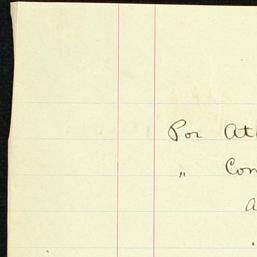 Por At
" Con
a